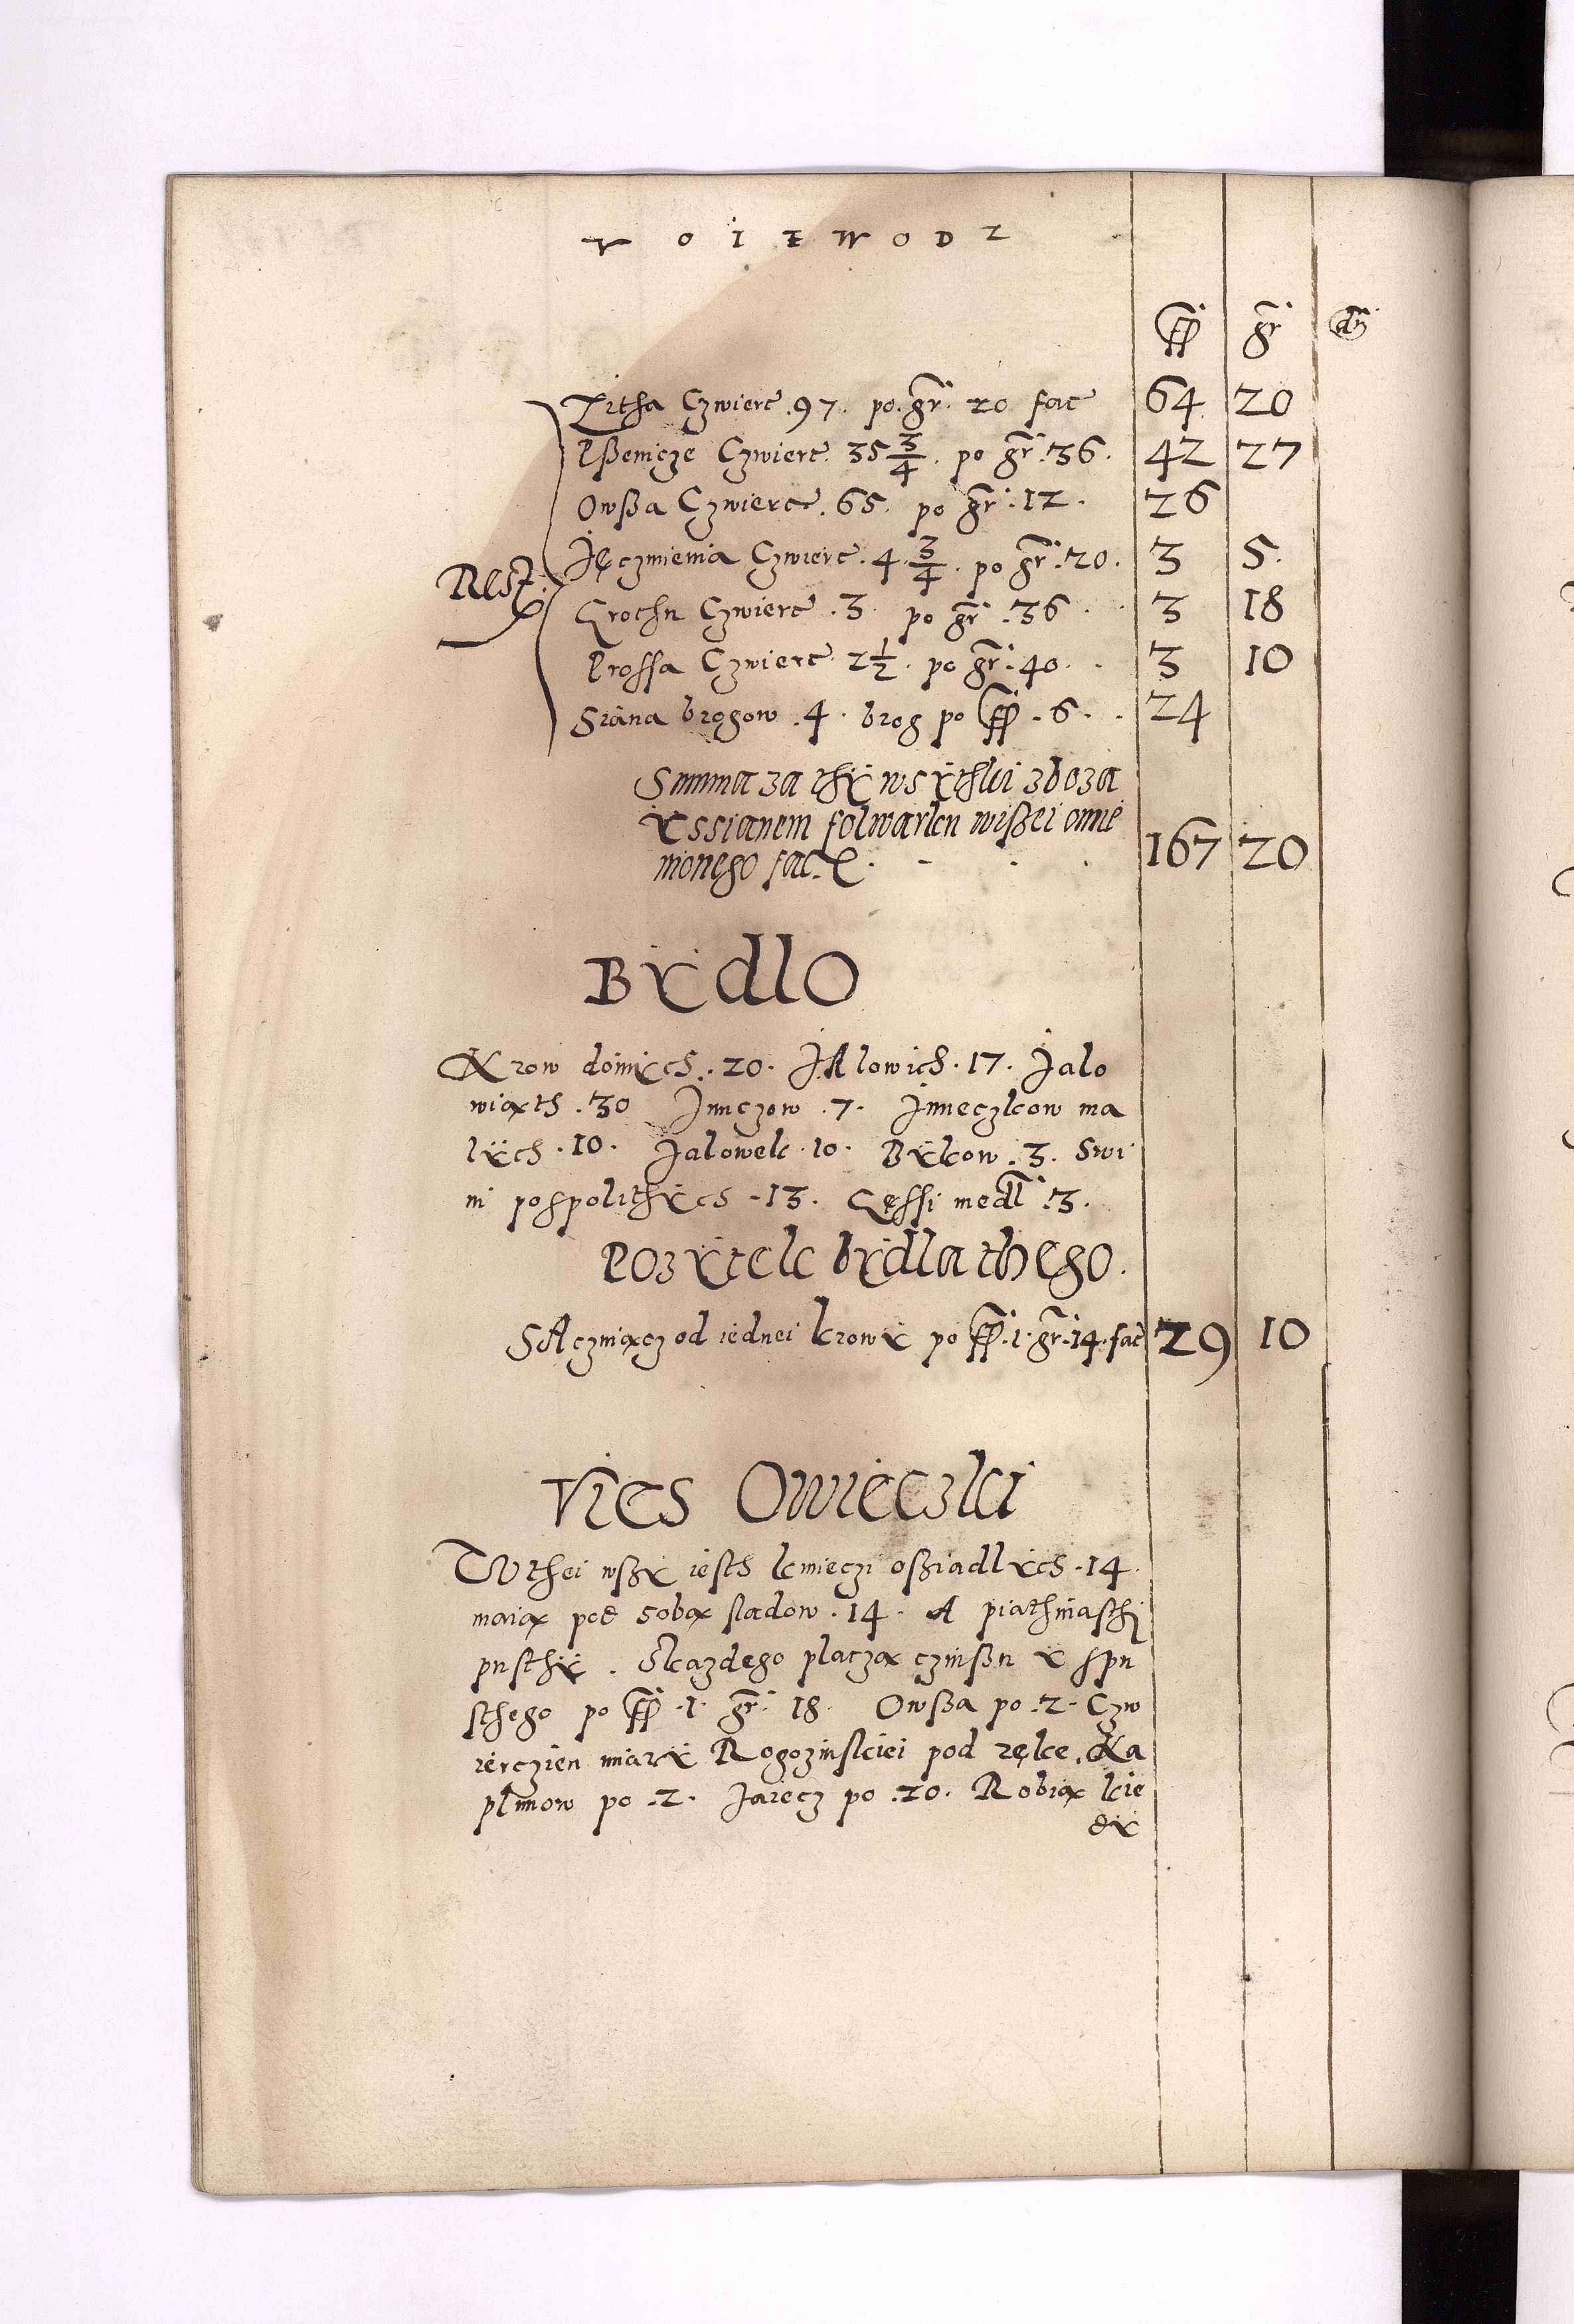 VOIEWODZ
fl gr dn
Zitha Czwiert .97. po. gr. 20 fac 64 20
Pßenicze Czwiert. 35 3/4. po gr. 36. 42 27
Owßa Czwiert. 65. po gr. 12. 26
Rest.
Jęczmienia Czwiert. 4. 3/4. po gr. 20. 3 5.
Grochu Czwiert .3. po gr. 36 3 18
Prossa Czwiert 2 1/2. po gr. 40. 3 10
Siana brogow .4. brog po fl. 6. 24
Summa za thÿ wsÿthki zboza
ÿ ssianem folwarku wißei omie
nionego fac. 167 20
BYdlO
Krow doinÿch. 20. JAlowich. 17. Jalo
wiąth .30 Junczow .7. Juneczkow ma
lÿch. 10. Jalowek. 10. Bÿkow .3. Swi
ni pospolithÿch. 13. Gęssi medl. 3.
Pozÿtek bÿdla thego.
SAczuiącz od iednei krowÿ po fl. 1. gr. 14. fac 29 10
Vies Owieczki
W thei wßÿ iesth kmieczi oßiadlÿch. 14.
maią pod sobą sladow. 14. A piathnasthi
pusthÿ. Skazdego placzą czinßu ÿ spu
sthego po fl. 1. gr. 18. Owßa po .2. Czw
ierczien miarÿ Rogozinskiei pod rękę. Ka
plunow po .2. Jaiecz po .20. Robią kie
dÿ